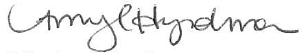 Amy L Hyndman